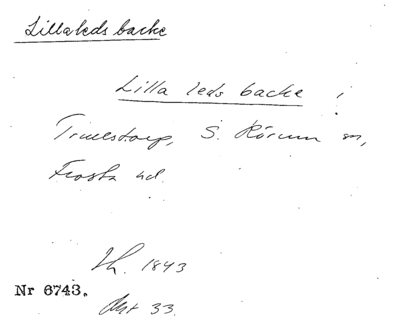 Lillaleds backe
Lilla leds backe i
Truelstorp, S. Rörum sn,
Frosta hd.
Lh. 1843
Nr 6743.
Akt 33.